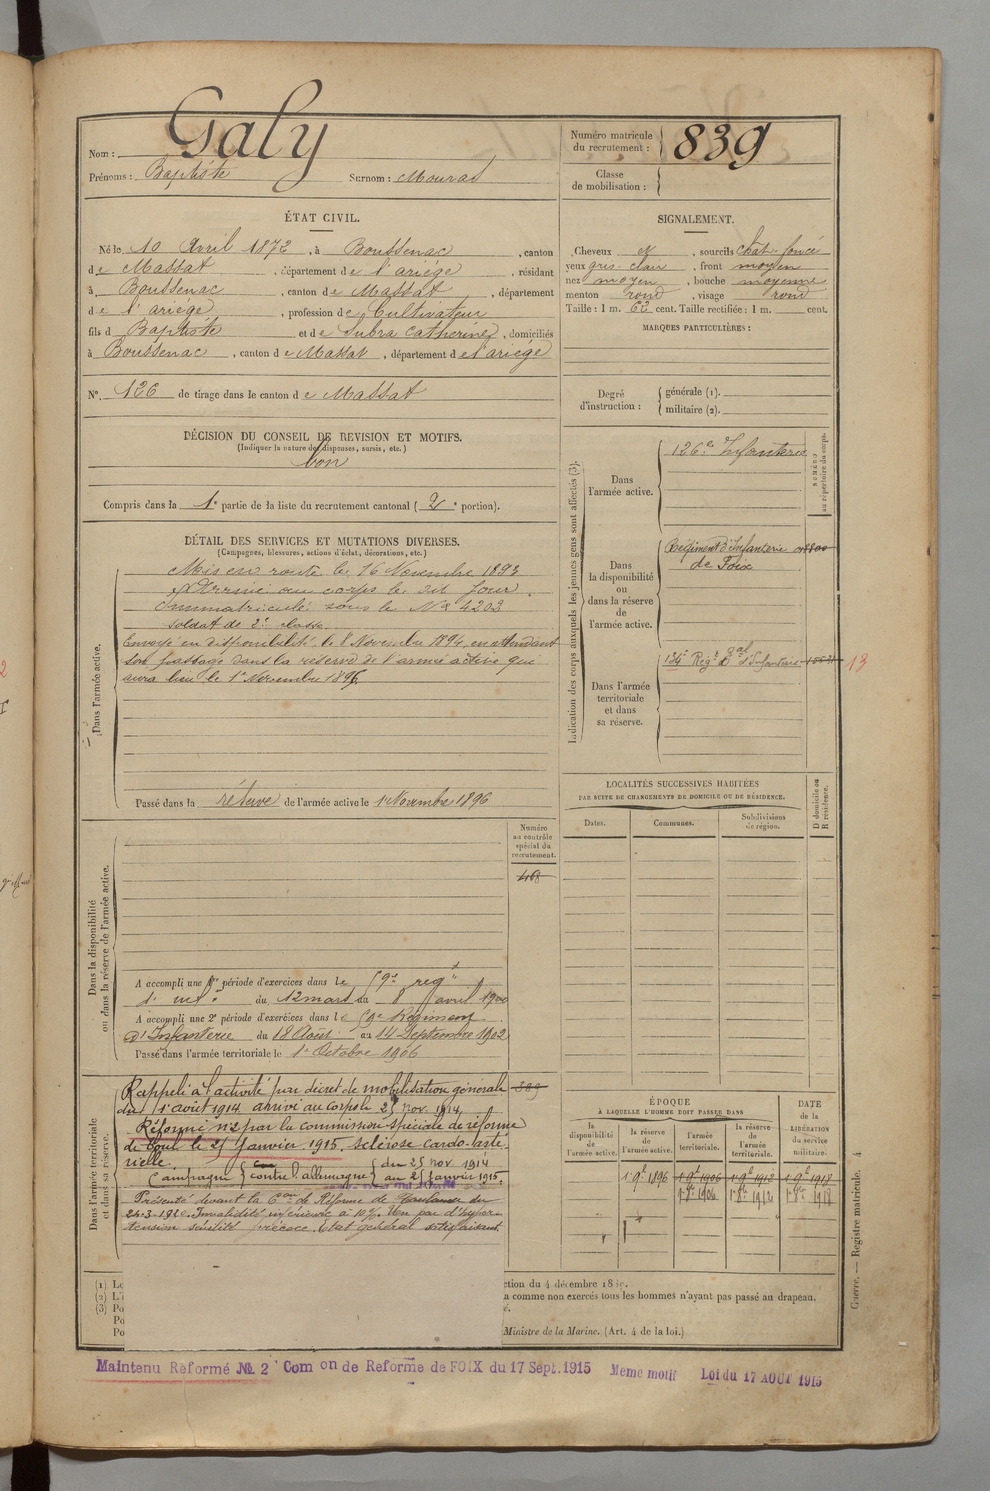 Nom : Galy
Prénoms : Baptiste Surnom : Mourad
Numéro matricule du recrutement : 839
Classe de mobilisation :
ÉTAT CIVIL.
Né le 10 Avril 1872, à Boussenac, canton
de Massat, département de l'ariége, résidant
à Boussenac, canton de Massat, département
de l'ariége, profession de Cultivateur
fils d Baptiste et de Subra Catherine, domiciliés
à Boussenac, canton de Massat, département de l'ariége
No. 126 de tirage dans le canton de Massat
DÉCISION DU CONSEIL DE REVISION ET MOTIFS.
(Indiquer la nature des dispenses, sursis, etc.)
bon
Compris dans la 1e partie de la liste du recrutement cantonal (2e portion).
DÉTAIL DES SERVICES ET MUTATIONS DIVERSES.
(Campagnes, blessures, actions d'éclat, décorations, etc.)
Dans l'armée active.
Mis en route le 16 Novembre 1893
Arrivé au corps le dit jour.
Immatriculé sous le No 4203
soldat de 2e classe
Envoyé en disponibilité le 8 Novembre 1894, en attendant
son passage dans la réserve de l'armée active qui
aura lieu le 1er Novembre 1896
Passé dans la réserve de l'armée active le 1 Novembre 1896
Numéro
au contrôle
spécial du
recrutement.
468
Dans la disponibilité
ou dans la réserve de l'armée active.
A accompli une 1re période d'exercices dans le 59e regt
d'inf.ie du 12 mars au 8 avril 1900
A accompli une 2e période d'exercices dans le 59e Régiment
d'Infanterie du 18 Août au 14 Septembre 1902
Passé dans l'armée territoriale le 1er Octobre 1906
Dans l'armée territoriale
et dans sa réserve.
Rappelé à l'activité par décret de mobilisation générale
du 1er août 1914 arrivé au corps le 25 nov. 1914.
Réformé no 2 par la commission spéciale de réforme
de Toul le 25 Janvier 1915. sclérose cardo-arté
rielle.
Campagne contre l'allemagne du 25 nov. 1914
au 25 Janvier 1915.
Présenté devant la Con de Réforme de Toulouse du
24-3-1920. Invalidité inférieure à 10%. Un peu d'hyper
tension sénilité précoce. Etat général satisfaisant.
SIGNALEMENT.
Cheveux et, sourcils chat. foncé
yeux gris-clair, front moyen
nez moyen, bouche moyenne
menton rond, visage rond
Taille : 1 m. 62 cent. Taille rectifiée : 1 m. cent.
MARQUES PARTICULIÈRES :
Degré d'instruction : générale (1).
militaire (2).
Indication des corps auxquels les jeunes gens sont affectés (3).
NUMÉRO
au répertoire du corps.
Dans l'armée active. 126e Infanterie
Dans la disponibilité ou dans la réserve de l'armée active. Régiment d'Infanterie
de Foix
Dans l'armée territoriale et dans sa réserve. 134e Régt al d'Infanterie 13
LOCALITÉS SUCCESSIVES HABITÉES
PAR SUITE DE CHANGEMENTS DE DOMICILE OU DE RÉSIDENCE.
D domicile ou
R résidence.
Dates. Communes. Subdivisions de région.
ÉPOQUE
À LAQUELLE L'HOMME DOIT PASSER DANS
DATE de la LIBÉRATION du service militaire.
la disponibilité de l'armée active. la réserve de l'armée active. l'armée territoriale. la réserve de l'armée territoriale.
1 9bre 1896 1 9bre 1906 1 9bre 1912 1 9bre 1918
ction du 4 décembre 18
a comme non exercés tous les hommes n'ayant pas passé au drapeau.
Ministre de la Marine. (Art. 4 de la loi.)
Guerre. — Registre matricule. 4
Maintenu Réformé No. 2 Com on de Reforme de FOIX du 17 Sept. 1915 Meme motif Loi du 17 AOUT 1915